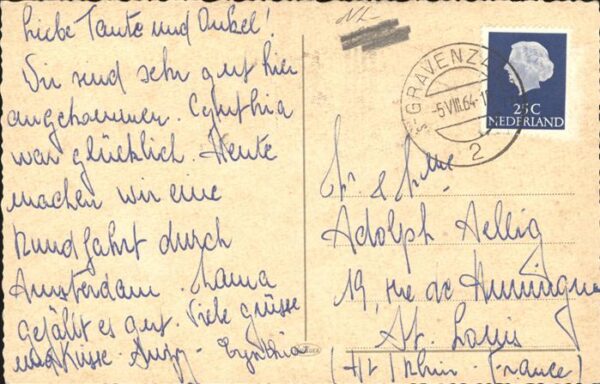 Liebe Tante und Onkel!
Wir sind sehr gut hier
angekommen. Cynthia
war glücklich. Heute
machen wir eine
Rundfahrt durch
Amsterdam. Mama
gefällt es gut. Viele grüsse
und Küsse. Cynthia
NL
'S-GRAVENZ
-5.VIII.64-1
2
25C
NEDERLAND
Mr & Mme
Adolph Aellig
19, rue de Huningue
St. Louis
(Ht / Rhin - France)